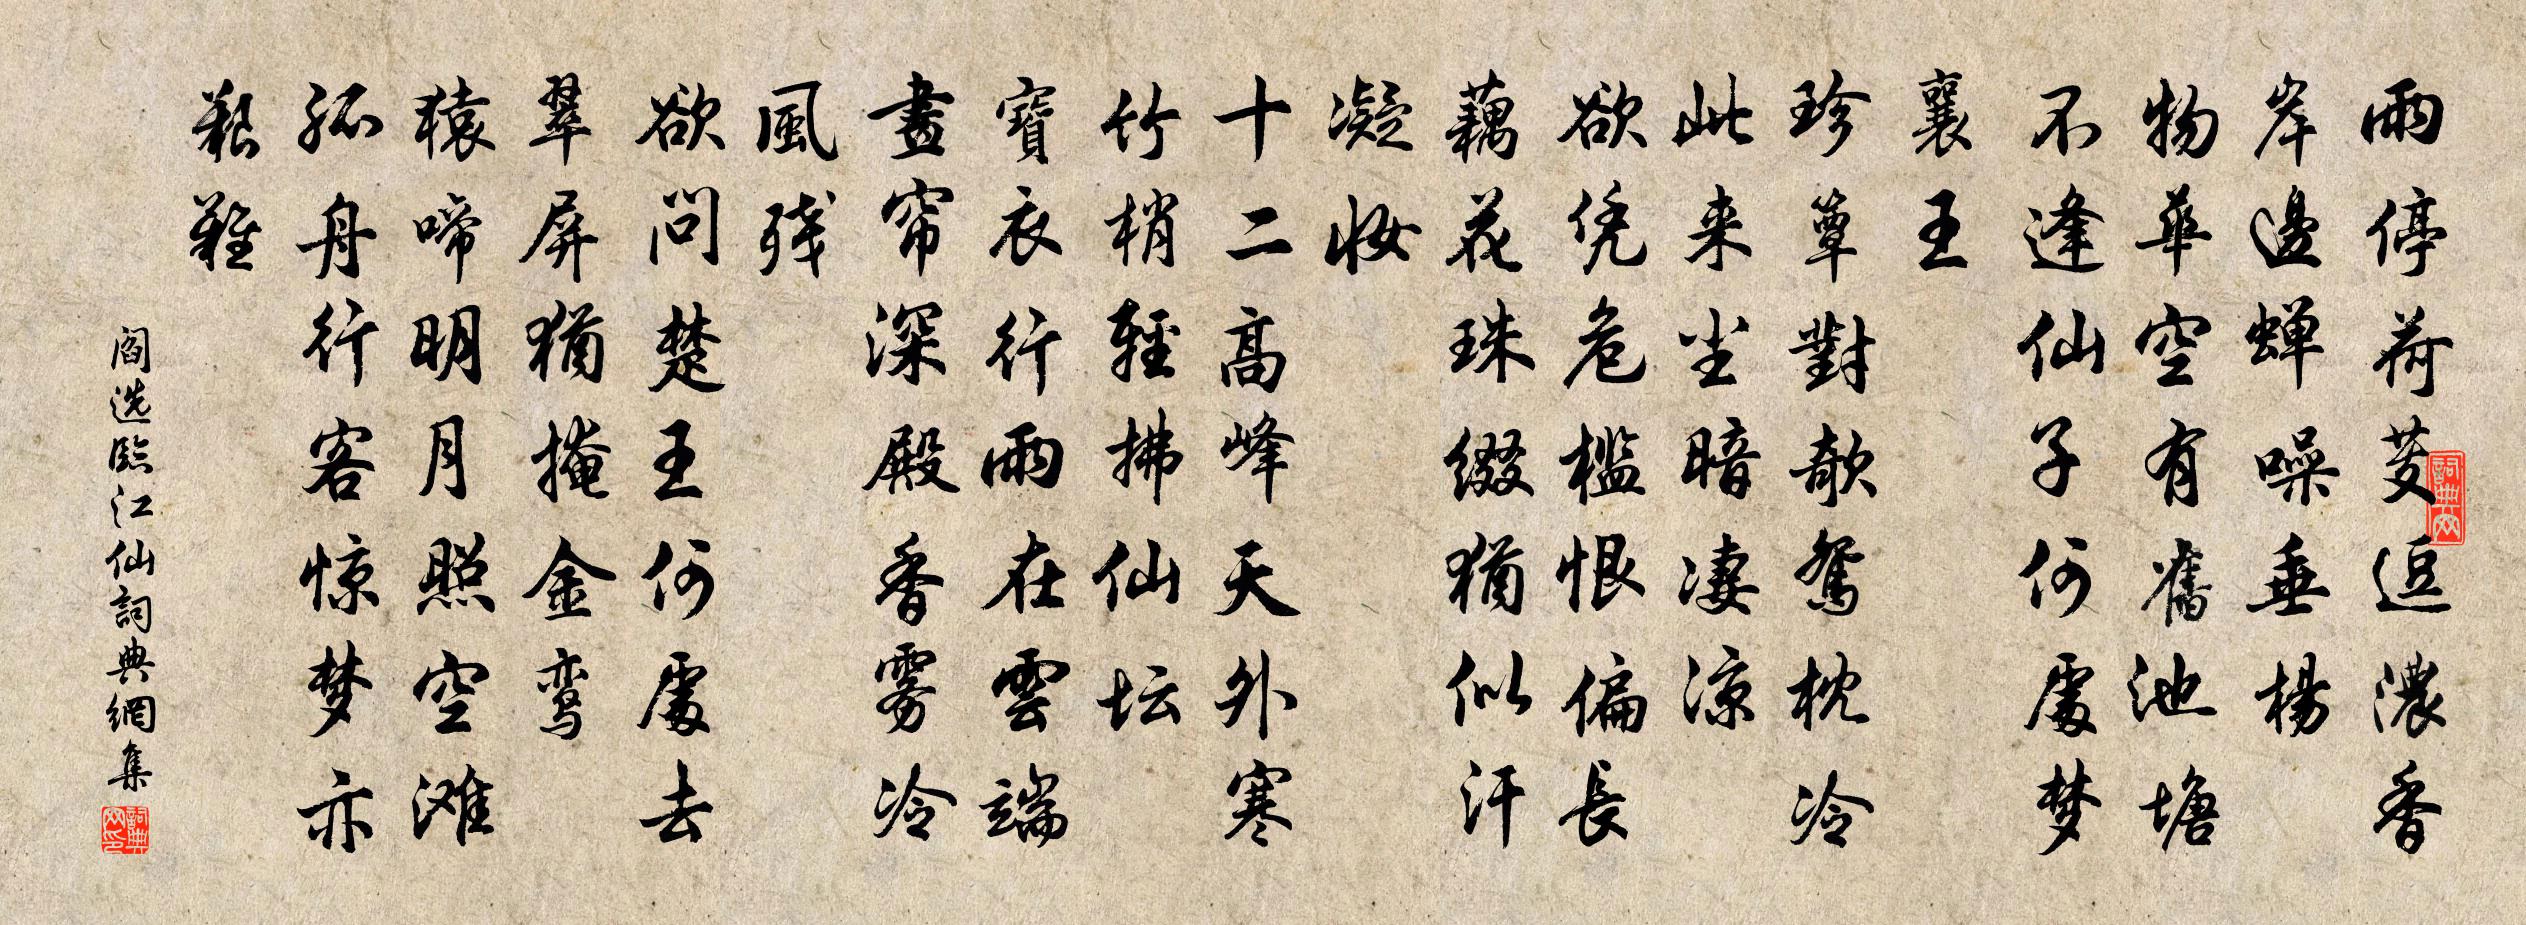 雨停荷芰逗濃香
岸邊蟬噪垂楊
物華空有舊池塘
不逢仙子何處梦
襄王
珍簟對欹鴛枕冷
此来尘暗凄涼
欲凭危槛恨偏長
藕花珠缀猶似汗
凝妝
十二高峰天外寒
竹梢輕拂仙坛
寶衣行雨在雲端
畫帘深殿香雾冷
風残
欲问楚王何處去
翠屏猶掩金鸾
猿啼明月照空滩
孤舟行客惊梦亦
艱難
阎选臨江仙詞典網集
詞典网
詞典网印